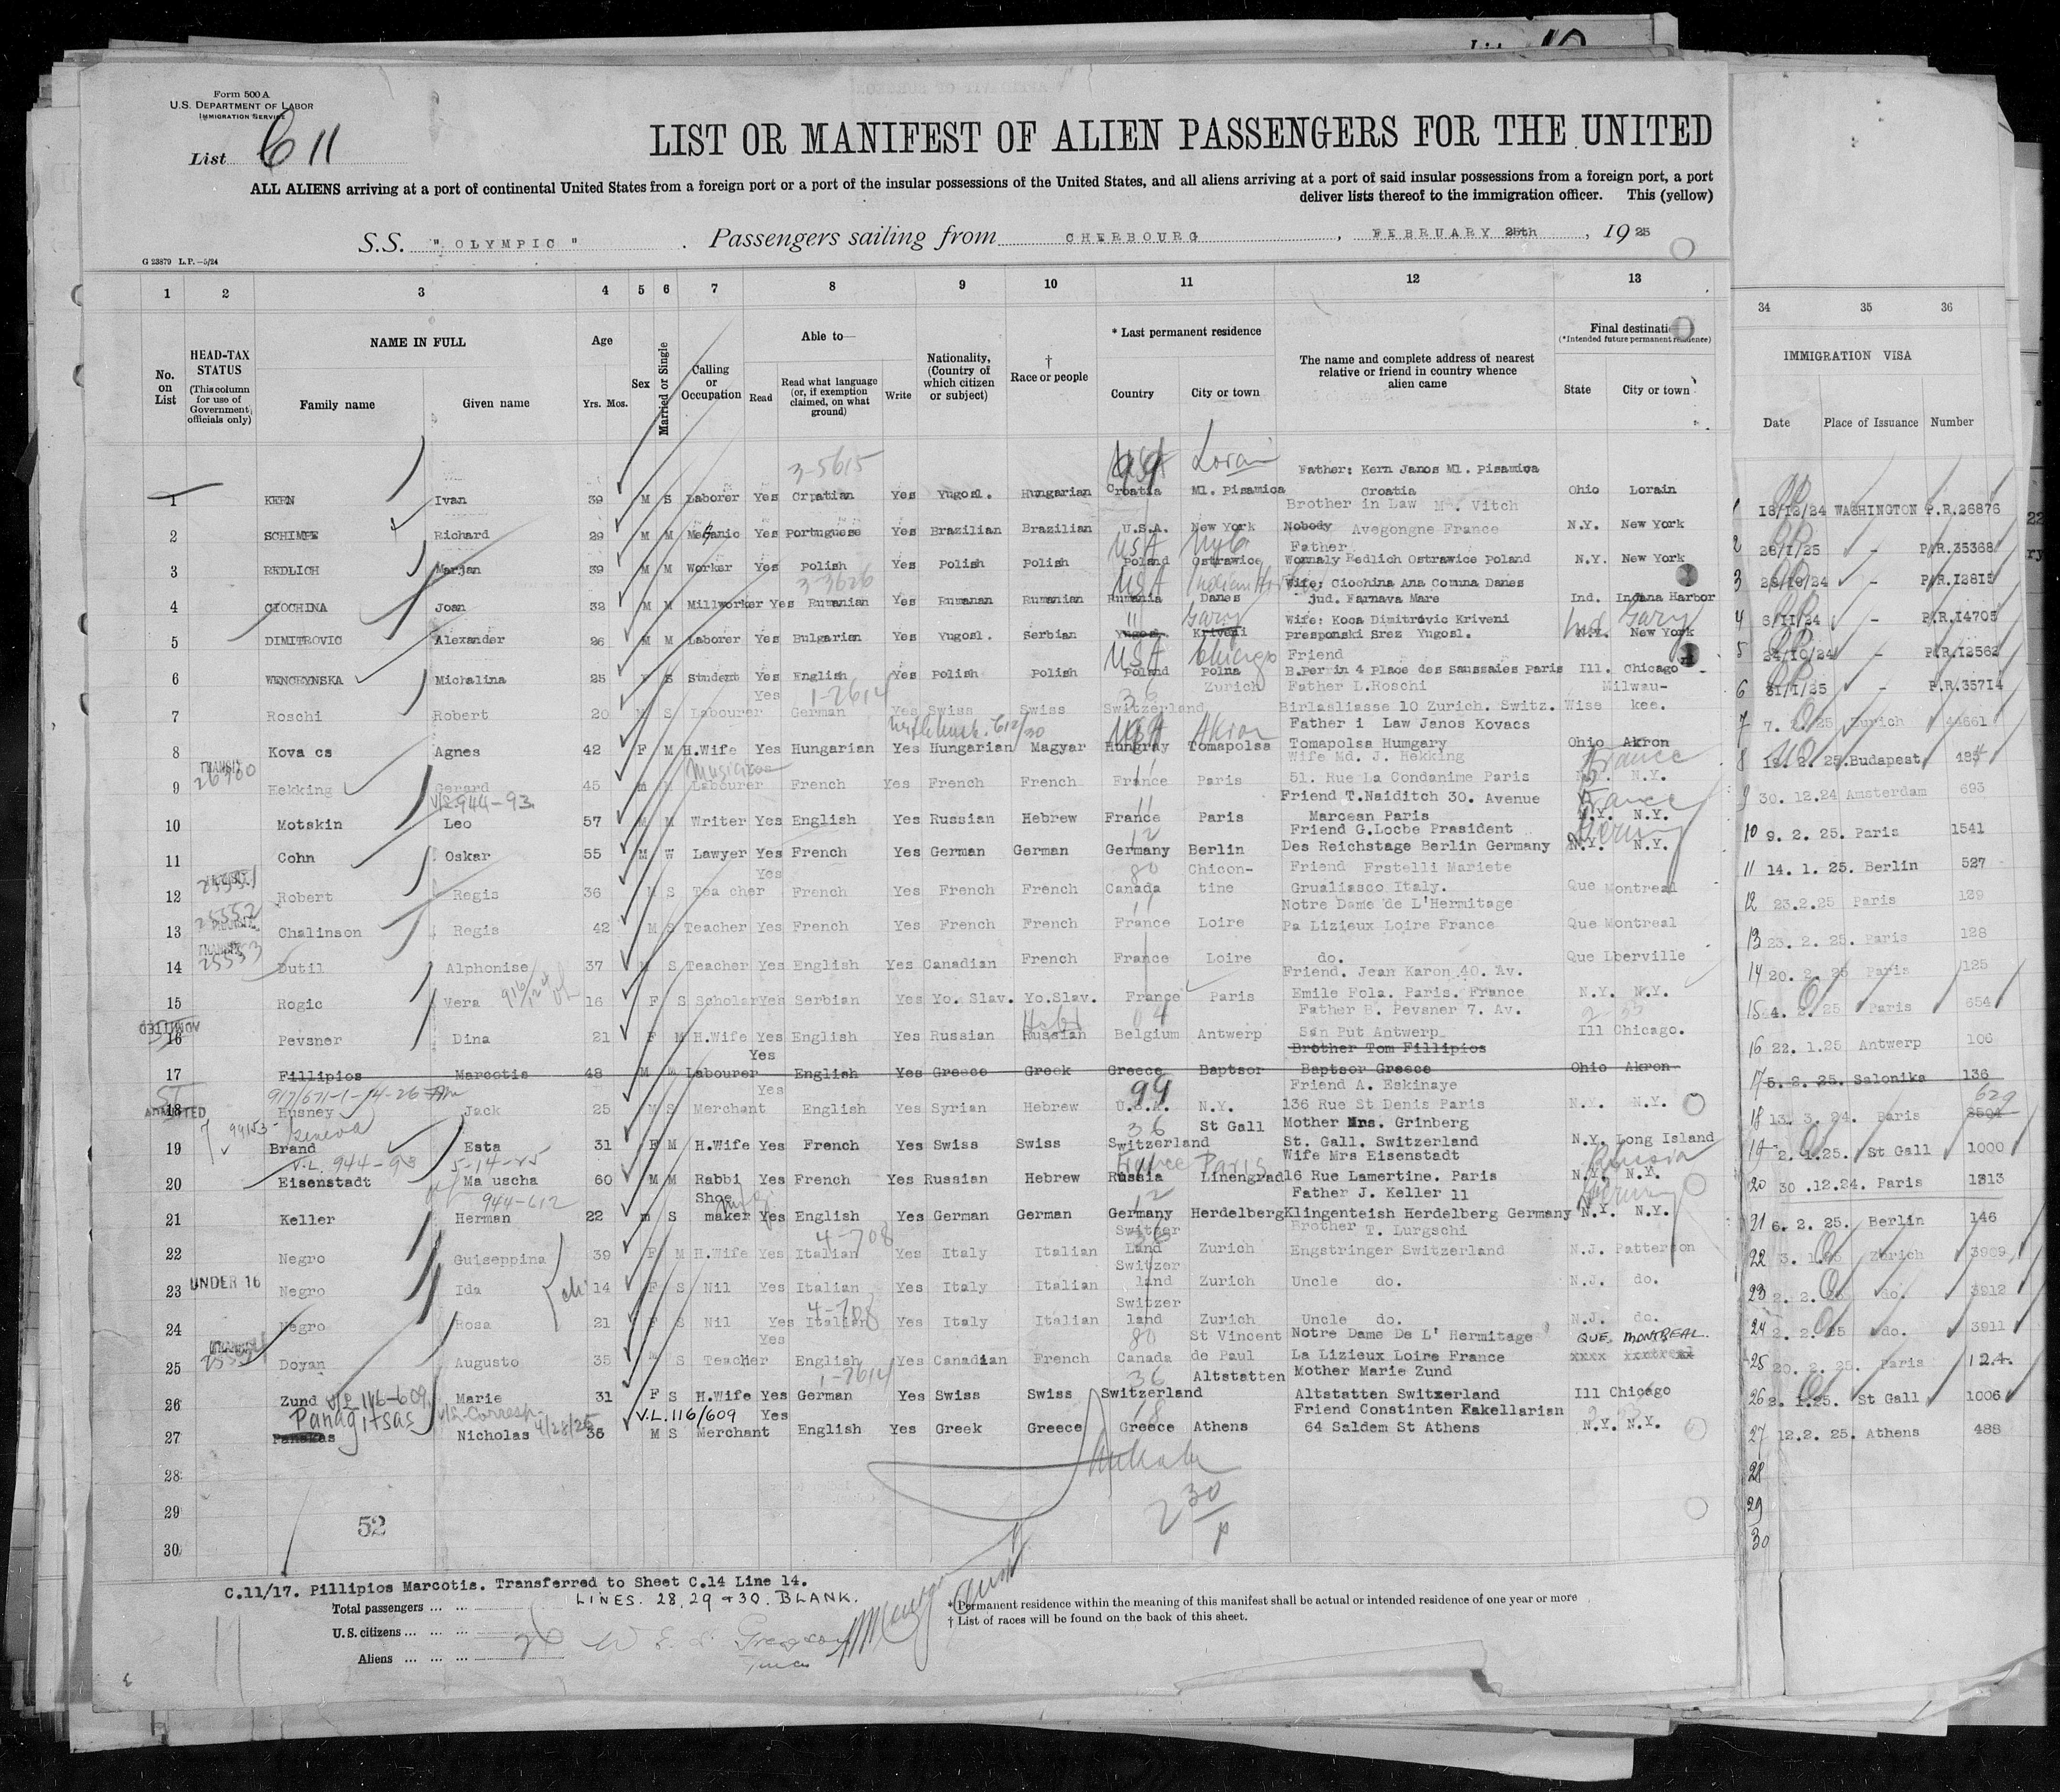 Form 500 A
U.S. DEPARTMENT OF LABOR
IMMIGRATION SERVICE
List C 11
LIST OR MANIFEST OF ALIEN PASSENGERS FOR THE UNITED
ALL ALIENS arriving at a port of continental United States from a foreign port or a port of the insular possessions of the United States, and all aliens arriving at a port of said insular possessions from a foreign port, a port
deliver lists thereof to the immigration officer. This (yellow)
S.S. " OLYMPIC " . Passengers sailing from CHERBOURG , FEBRUARY 25th , 1925
G 23879 L.P.—5/24
1 2 3 4 5 6 7 8 9 10 11 12 13 34 35 36
No. on List
HEAD-TAX STATUS (This column for use of Government officials only)
NAME IN FULL Family name Given name
Age Yrs. Mos.
Sex
Married or Single
Calling or Occupation
Able to— Read Read what language (or, if exemption claimed, on what ground) Write
Nationality, (Country of which citizen or subject)
† Race or people
* Last permanent residence Country City or town
The name and complete address of nearest relative or friend in country whence alien came
Final destination (*Intended future permanent residence) State City or town
IMMIGRATION VISA Date Place of Issuance Number
3-5615 99 Lorain Father: Kern Janos Ml. Pisamica
1 KERN Ivan 39 M S Laborer Yes Crpatian Yes Yugosl. Hungarian Croatia Ml. Pisamica Croatia Ohio Lorain 1 18/12/24 WASHINGTON P.R.26876
Brother in Law M. Vitch
2 SCHIMPE Richard 29 M M Mecanic Yes Portuguese Yes Brazilian Brazilian U.S.A. New York Nobody Avegongne France N.Y. New York 2 28/1/25 - P.R.35368
USA Father
3 REDLICH Marjan 39 M M Worker Yes Polish Yes Polish Polish Poland Ostrawice Wornaly Redlich Ostrawice Poland N.Y. New York 3 28/10/24 - P.R.12815
3-3626 USA Indian Harbor Wife: Ciochina Ana Comuna Danes
4 CIOCHINA Joan 32 M M Millworker Yes Rumanian Yes Rumanan Rumanian Rumania Danes jud. Farnava Mare Ind. Indana Harbor 4 8/11/24 - P.R.14705
" Gary Wife: Koca Dimitrovic Kriveni Ind Gary
5 DIMITROVIC Alexander 26 M M Laborer Yes Bulgarian Yes Yugosl. Serbian Yugosl. Kriveni presponski Srez Yugosl. N.Y. New York 5 24/10/24 - P.R.12562
USA Chicago Friend
6 WENCHYNSKA Michalina 25 F S Student Yes English Yes Polish Polish Poland Polna B.Per in 4 Place des Saussaies Paris Ill. Chicago 6 31/1/25 - P.R.35714
Yes 1-2614 36 Zurich Father L.Roschi Milwau-
7 Roschi Robert 20 M S Labourer German Yes Swiss Swiss Switzerland Birlasliasse 10 Zurich. Switz. Wise kee. 7 7. 2. 25 Zurich 44661
USA Akron Father i Law Janos Kovacs
8 Kova cs Agnes 42 F M H.Wife Yes Hungarian Yes Hungarian Magyar Hungray Tomapolsa Tomapolsa Humgary Ohio Akron 8 19. 2. 25. Budapest 484
TRANSIT 26700 Musician Wife Md. J. Hekking France
9 Hekking Gerard 45 m M Labourer French Yes French French France Paris 51. Rue La Condanime Paris N.Y. N.Y. 9 30. 12.24 Amsterdam 693
V/L 944-93 Friend T.Naiditch 30. Avenue France
10 Motskin Leo 57 M M Writer Yes English Yes Russian Hebrew France Paris Marcean Paris N.Y. N.Y. 10 9. 2. 25. Paris 1541
12 Friend G.Locbe Prasident Germany
11 Cohn Oskar 55 M W Lawyer Yes French Yes German German Germany Berlin Des Reichstage Berlin Germany N.Y. N.Y. 11 14. 1. 25. Berlin 527
Yes 80 Chicon- Friend Frstelli Mariete
12 Robert Regis 36 M S Tea cher French Yes French French Canada tine Grualiasco Italy. Que Montreal 12 23.2.25 Paris 129
25552 Notre Dame de L'Hermitage
13 Chalinson Regis 42 M S Teacher Yes French Yes French French France Loire Pa Lizieux Loire France Que Montreal 13 23. 2. 25. Paris 128
TRANSIT 25553
14 Dutil Alphonise 37 M S Teacher Yes English Yes Canadian French France Loire do. Que Lberville 14 20. 2. 25 Paris 125
Friend. Jean Karon 40. Av.
15 Rogic Vera 16 F S Scholar Yes Serbian Yes Yo. Slav. Yo.Slav. France Paris Emile Fola. Paris. France N.Y. N.Y. 15 24. 2. 25 Paris 654
ADMITTED Father B. Pevsner 7. Av.
16 Pevsner Dina 21 F M H.Wife Yes English Yes Russian Russian Belgium Antwerp San Put Antwerp Ill Chicago. 16 22. 1.25 Antwerp 106
Yes Brother Tom Fillipios
17 Fillipios Marcotis 48 M M Labourer English Yes Greece Greek Greece Baptsor Baptsor Greece Ohio Akron 17 5. 2. 25. Saloniks 136
Yes 99 Friend A. Eskinaye 629
18 ADMITTED Husney Jack 25 M S Merchant English Yes Syrian Hebrew U.S.A. N.Y. 136 Rue St Denis Paris N.Y. N.Y. 18 13. 3. 24. Paris
Geneva 36 St Gall Mother Mrs. Grinberg
19 Brand Esta 31 F M H.Wife Yes French Yes Swiss Swiss Switzerland St. Gall. Switzerland N.Y. Long Island 19 2. 1.25. St Gall 1000
V.L. 944-98 5-14-25 France Paris Wife Mrs Eisenstadt Russia
20 Eisenstadt Ma uscha 60 M M Rabbi Yes French Yes Russian Hebrew Russia Linengrad 16 Rue Lamertine. Paris N.Y. N.Y. 20 30 .12.24. Paris 1313
944-612 Shoe 12 Father J. Keller 11 Germany
21 Keller Herman 22 m S maker Yes English Yes German German Germany Herdelberg Klingenteish Herdelberg Germany N.Y. N.Y. 21 6. 2. 25. Berlin 146
4-708 Switzer Brother T. Lurgschi
22 Negro Guiseppina 39 F M H.Wife Yes Italian Yes Italy Italian Land Zurich Engstringer Switzerland N.J. Patterson 22 3. 1. 25 Zurich 3909
Switzer
23 UNDER 16 Negro Ida 14 F S Nil Yes Italian Yes Italy Italian land Zurich Uncle do. N.J. do. 23 2. 2. 25 do. 3912
4-708 Switzer
24 Negro Rosa 21 F S Nil Yes Italian Yes Italy Italian land Zurich Uncle do. N.J. do. 24 2. 2. 25 do. 3911
Yes 80 St Vincent Notre Dame De L' Hermitage QUE. MONTREAL.
25 Doyan Augusto 35 M S Teacher English Yes Canadian French Canada de Paul La Lizieux Loire France 25 20. 2. 25. Paris 124.
1-2614 36 Altstatten Mother Marie Zund
26 Zund V/L 116-609 Marie 31 F S H.Wife Yes German Yes Swiss Swiss Switzerland Altstatten Switzerland Ill Chicago 26 2. 1.25. St Gall 1006
Panagitsas V/L-Corresp- 4/28/25 V.L.116/609 Yes 18 Friend Constinten Rakellarian
27 Panskas Nicholas 36 M S Merchant English Yes Greek Greece Greece Athens 64 Saldem St Athens N.Y. N.Y. 27 12.2. 25. Athens 488
28 28
29 29
52
30 30
2 30
C.11/17. Pillipios Marcotis. Transferred to Sheet C.14 Line 14.
LINES. 28, 29 & 30. BLANK.
Total passengers ... ...
U.S. citizens ... ... ...
Aliens ... ... ...
* Permanent residence within the meaning of this manifest shall be actual or intended residence of one year or more
† List of races will be found on the back of this sheet.
11